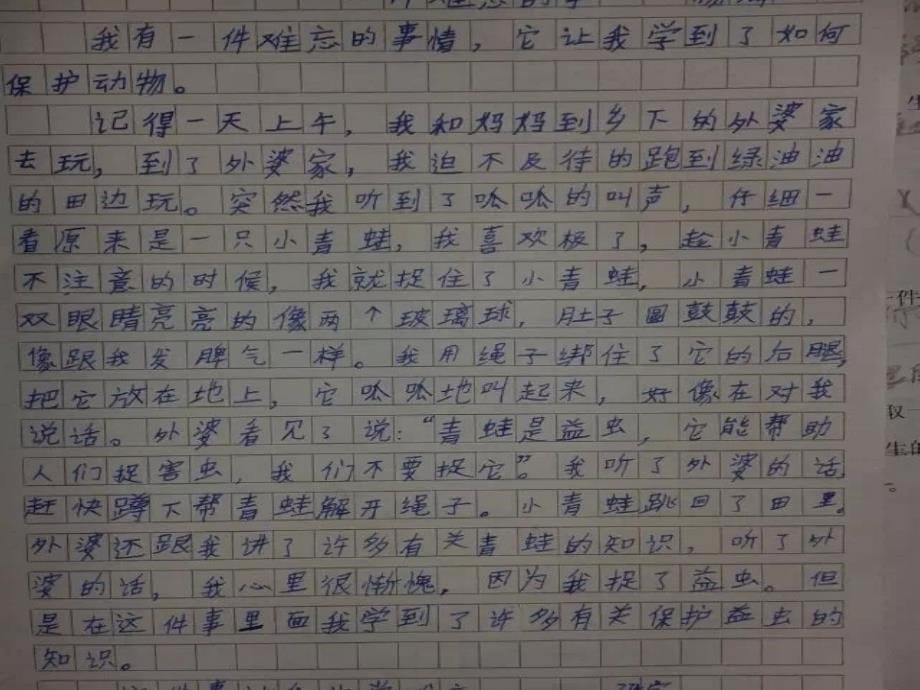 我有一件难忘的事情，它让我学到了如何
保护动物。
记得一天上午，我和妈妈到乡下的外婆家
去玩，到了外婆家，我迫不及待的跑到绿油油
的田边玩。突然我听到了呱呱的叫声，仔细一
看原来是一只小青蛙，我喜欢极了，趁小青蛙
不注意的时候，我就捉住了小青蛙，小青蛙一
双眼睛亮亮的像两个玻璃球，肚子圆鼓鼓的，
像跟我发脾气一样。我用绳子绑住了它的后腿，
把它放在地上，它呱呱地叫起来，好像在对我
说话。外婆看见了说：“青蛙是益虫，它能帮助
人们捉害虫，我们不要捉它”。我听了外婆的话，
赶快蹲下帮青蛙解开绳子。小青蛙跳回了田里。
外婆还跟我讲了许多有关青蛙的知识，听了外
婆的话，我心里很惭愧，因为我捉了益虫。但
是在这件事里面我学到了许多有关保护益虫的
知识。